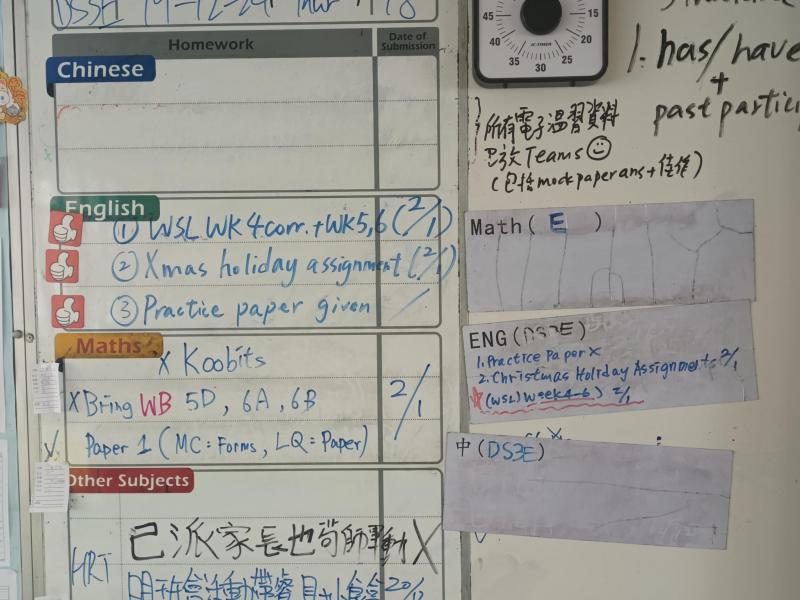 Homework
Date of Submission
Chinese
English
① WSL WK 4 corr. + WK5,6 (2/1)
② Xmas holiday assignment (2/1)
③ Practice paper given
Maths
x Koobits
X Bring WB 5D, 6A, 6B
2/1
Paper 1 (MC: Forms, LQ = Paper)
Other Subjects
HRT
已派家長也
X
45
15
40
20
35
30
25
1. has/have
+
past partici
所有電子溫習資料
已放Teams☺
(包括mock paper ans + 佳作)
Math ( E )
ENG (DS3E)
1. Practice Paper X
2. Christmas Holiday Assignment 2/1
(WSL) Week 4-6) 2/1
中 (DS3E)